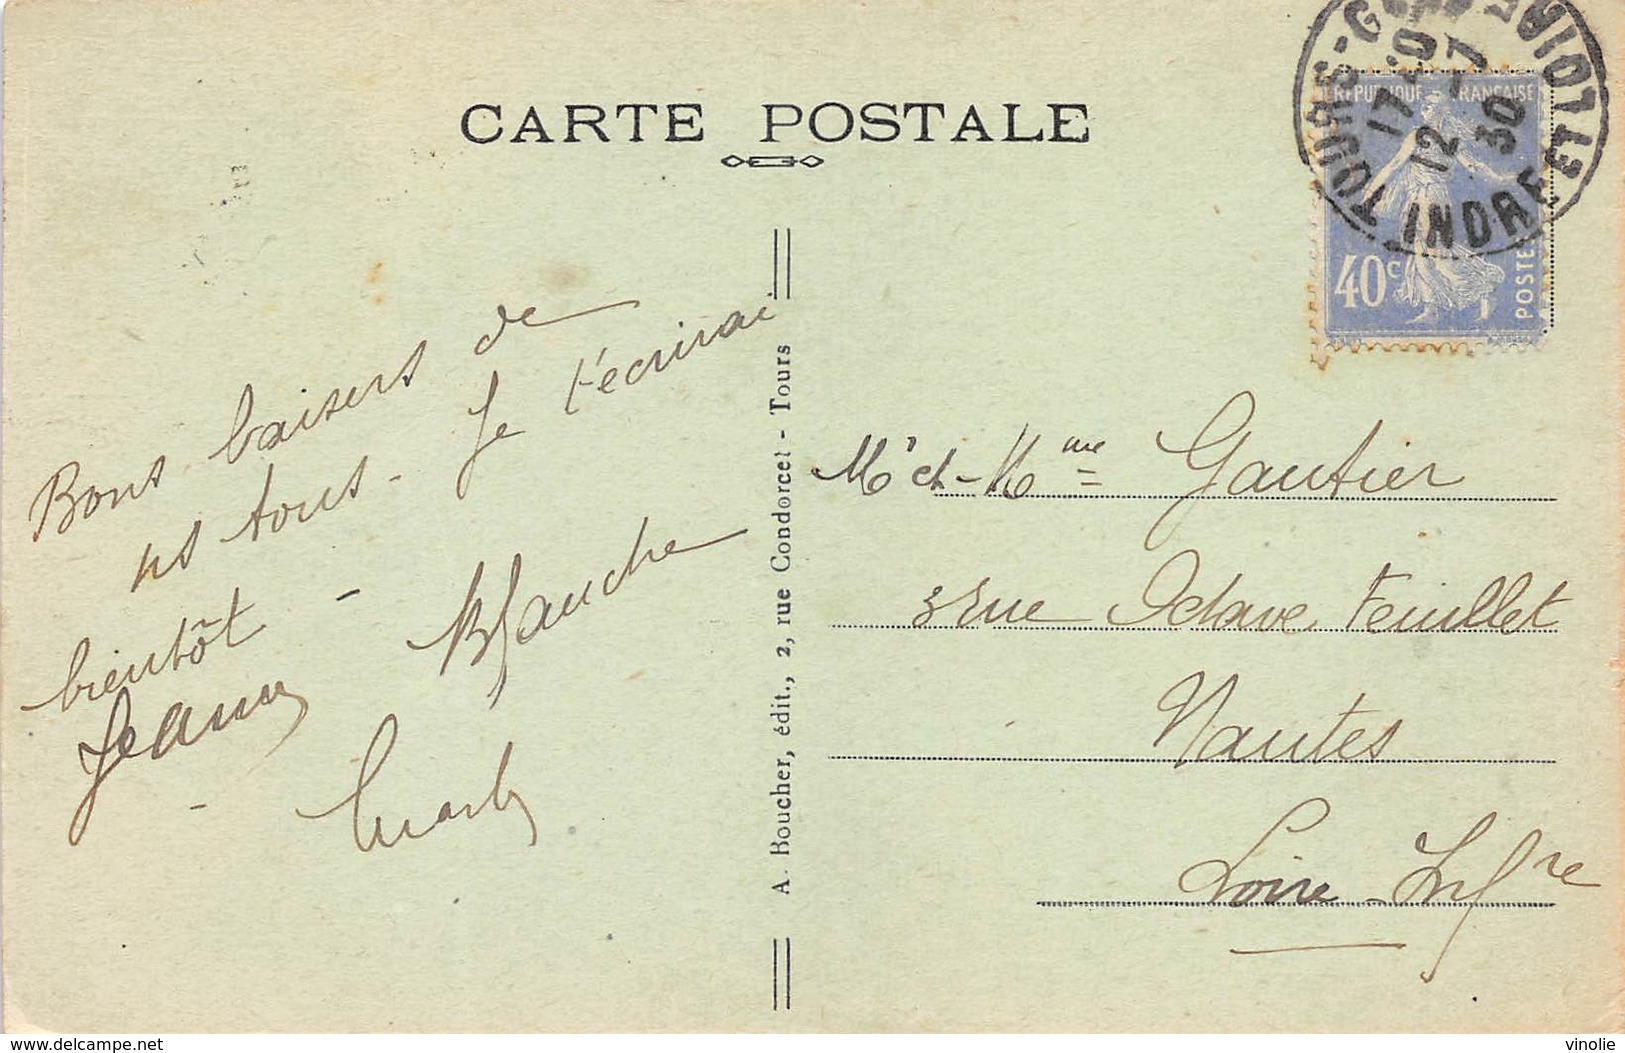 CARTE POSTALE
Bons baisers de
ns tous - Je t'écrirai
bientôt - Blanche
Jeanne
- Charly
A. Boucher, édit., 2, rue Condorcet - Tours
TOURS-GARE
INDRE ET LOIRE
17 40
12 -7
30
REPUBLIQUE FRANÇAISE
40c
POSTES
Mr et Mme Gautier
3 rue Octave Feuillet
Nantes
Loire-Infre
www.delcampe.net
vinolie